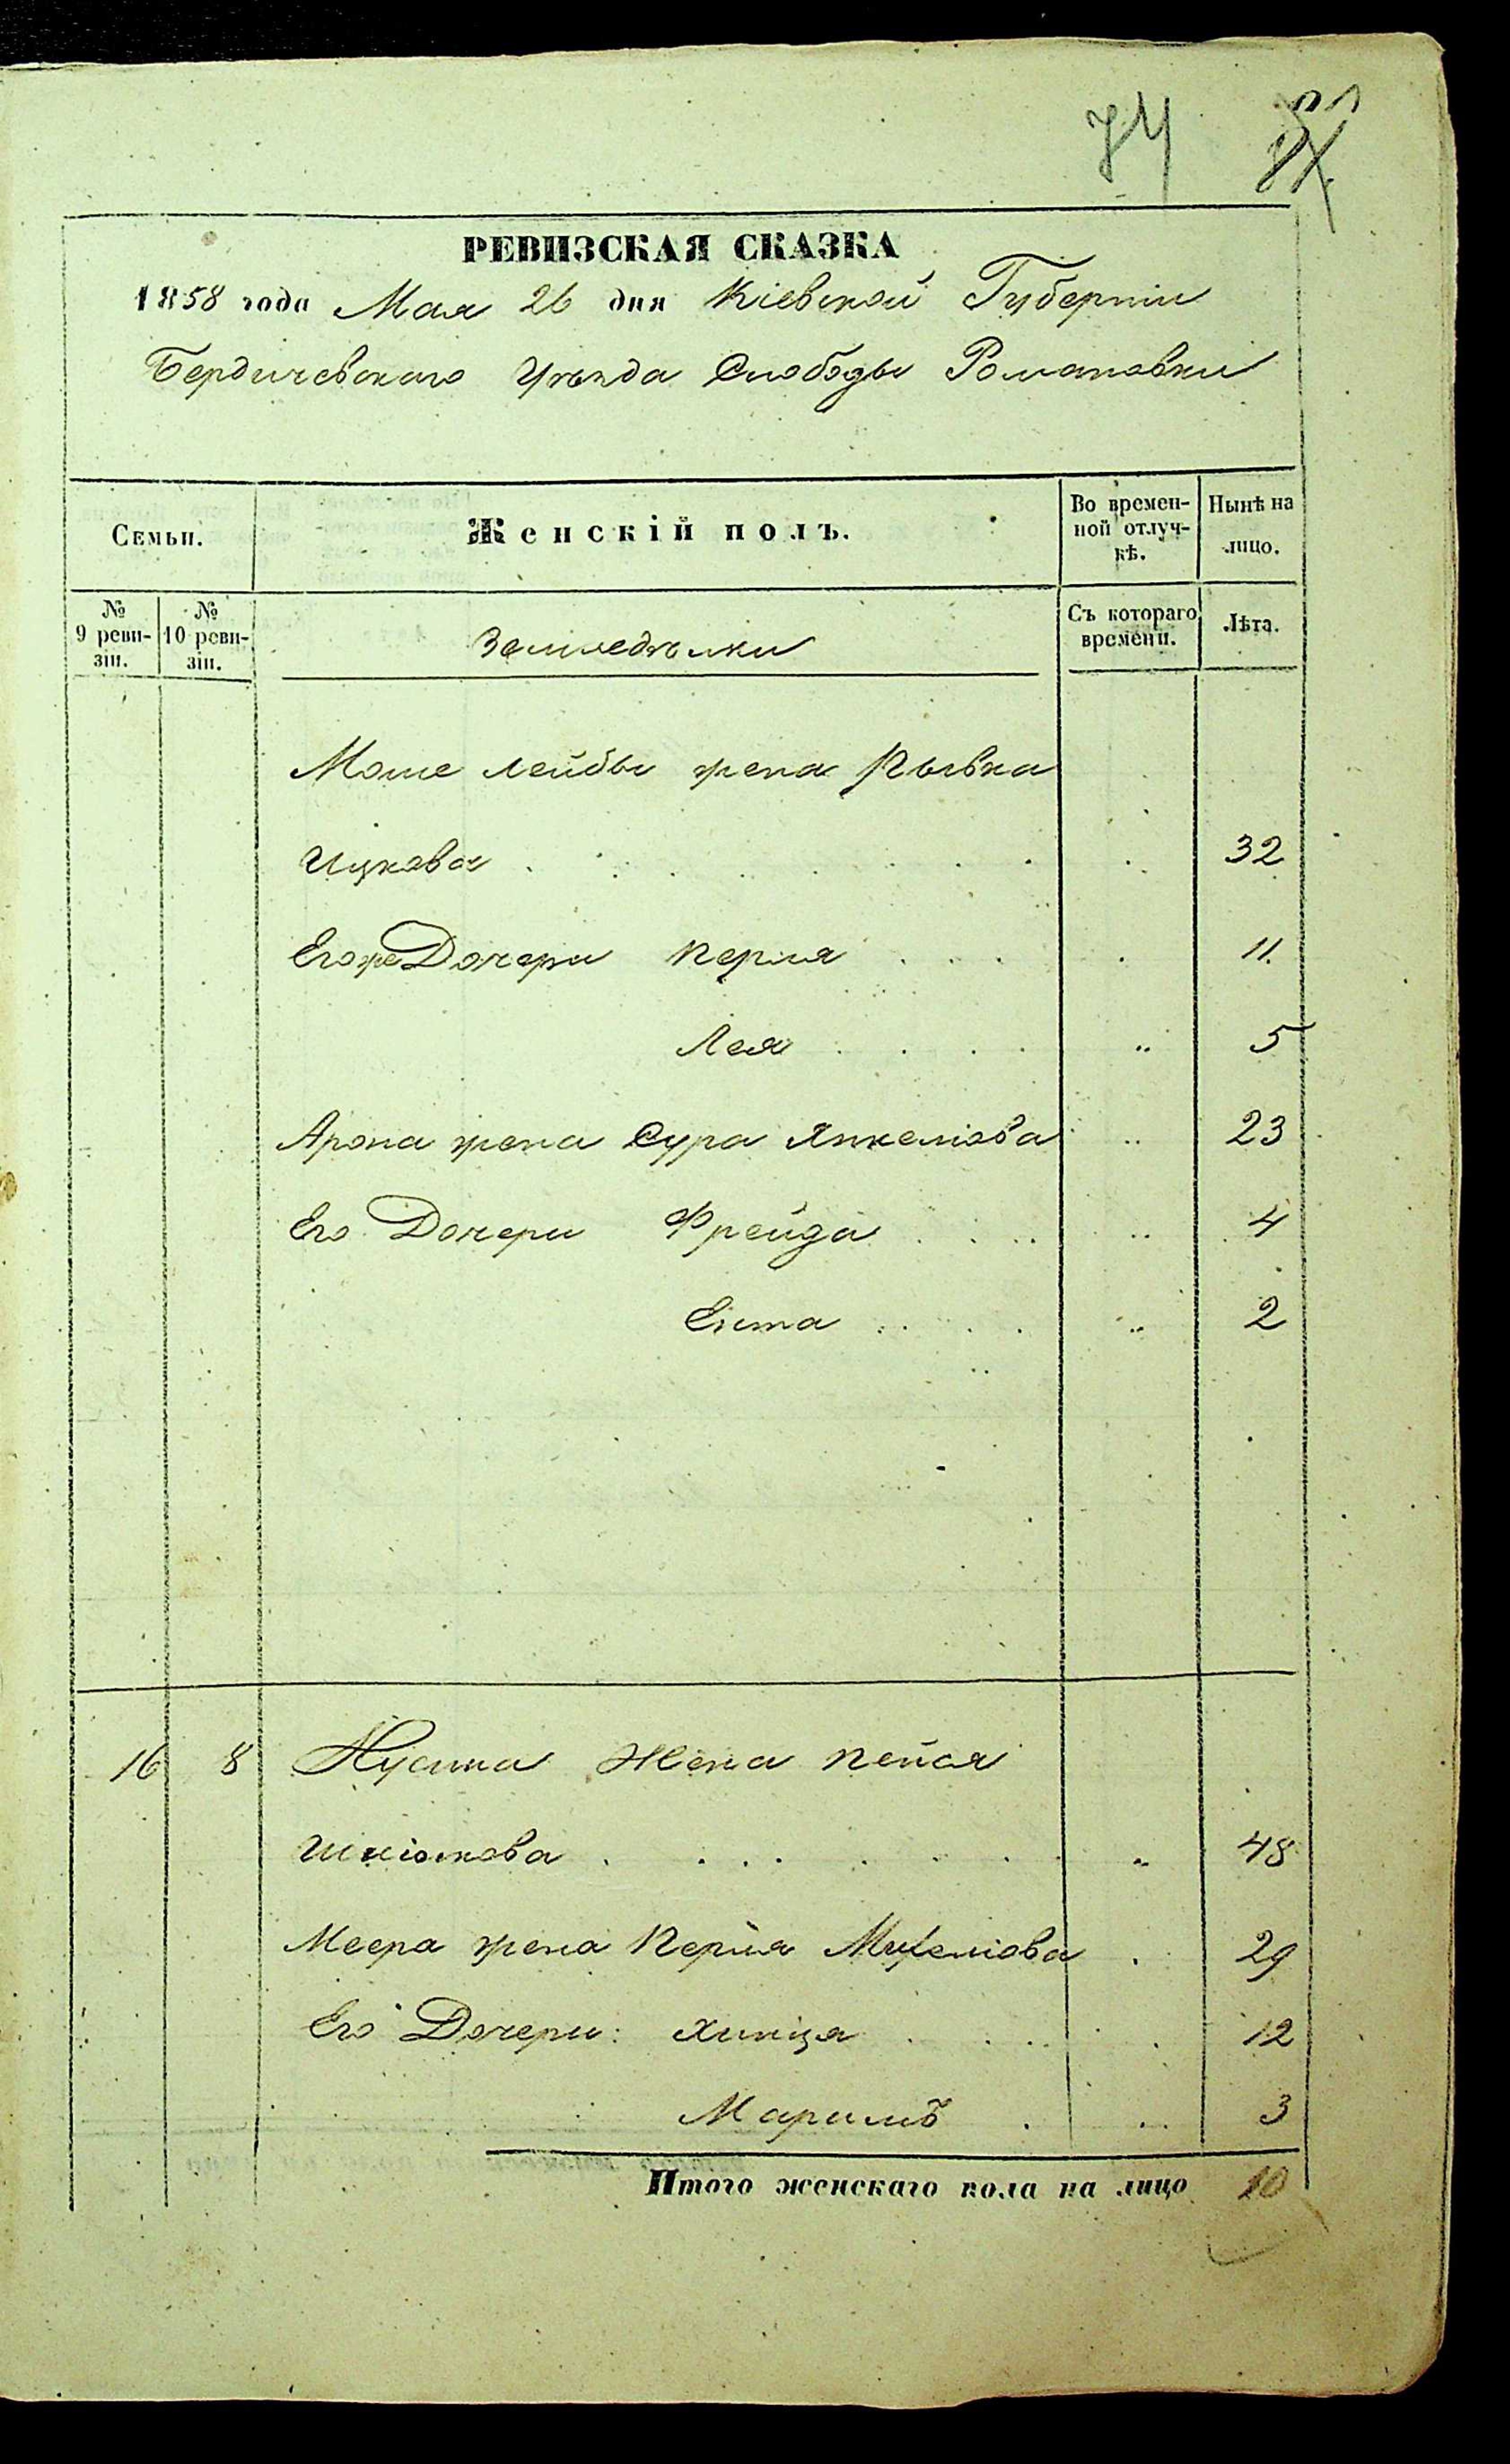 74
РЕВИЗСКАЯ СКАЗКА
1858 года Мая 26 дня Кіевской Губерніи
Бердичевскаго Уѣзда Слободы Романовки
Семьи.
Женскій полъ.
Во времен-
ной отлуч-
кѣ.
Нынѣ на
лицо.
№
9 реви-
зіи.
№
10 реви-
зіи.
Земледѣлки
Съ котораго
времени.
Лѣта.
Моше Лейбы жена Рывка
Ицкова 32
Егоже Дочери Перля 11
Лея 5
Арона жена Сура Янкеліова 23
Его Дочери Фрейда 4
Ента 2
16 8 Нусима Жена Пейся
Шліомова 48
Меера жена Перля Михеліова 29
Его Дочери: Хинця 12
Маримъ 3
Итого женскаго пола на лицо 10